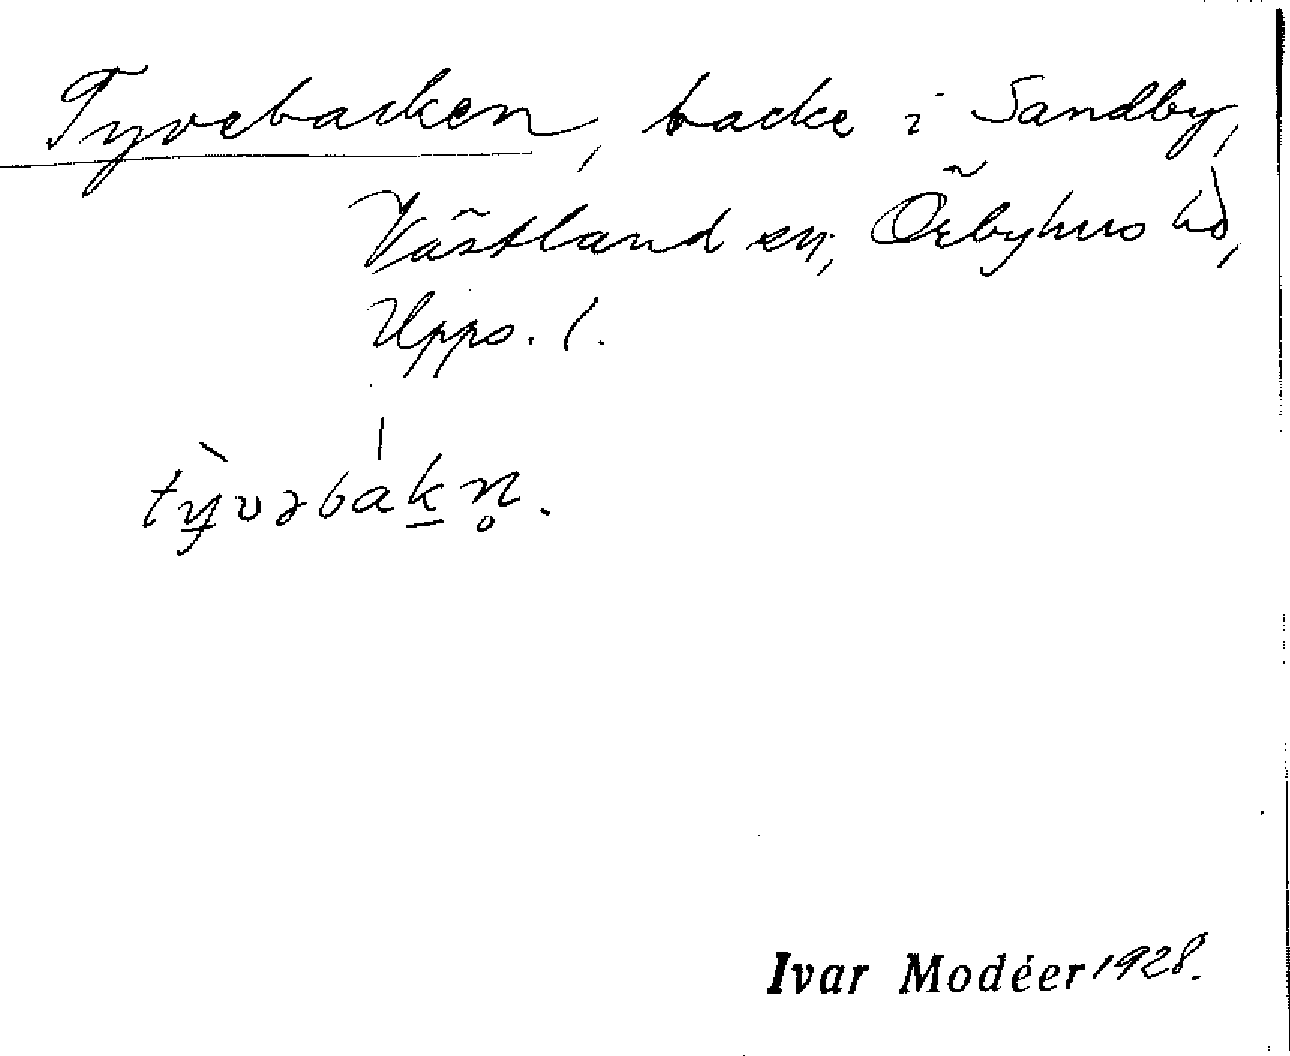 Tyvebacken, backe i Sandby,
Västland sn, Örbyhus hd,
Upps. l.
tỳ̲vəbák̲n̥.
Ivar Modéer 1928.